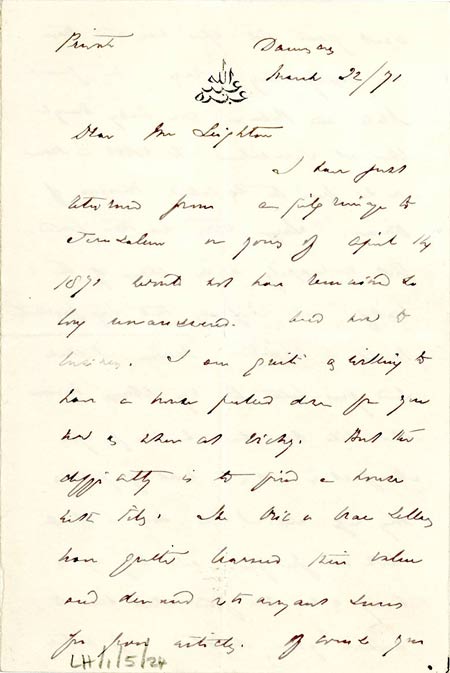 Private
Damascus
عبد الله
عبده
March 22/71
Dear Mr Leighton
I have just
returned from a pilgrimage to
Jerusalem or yours of April 14
1871 would not have remained so
long unanswered. And now to
business. I am quite as willing to
have a house pulled down for you
now as when at Vichy. But the
difficulty is to find a house
with tiles. The bric a brac sellers
have quite learned their value
and demand extravagant sums
for poor articles. Of course you
LH/1/5/24